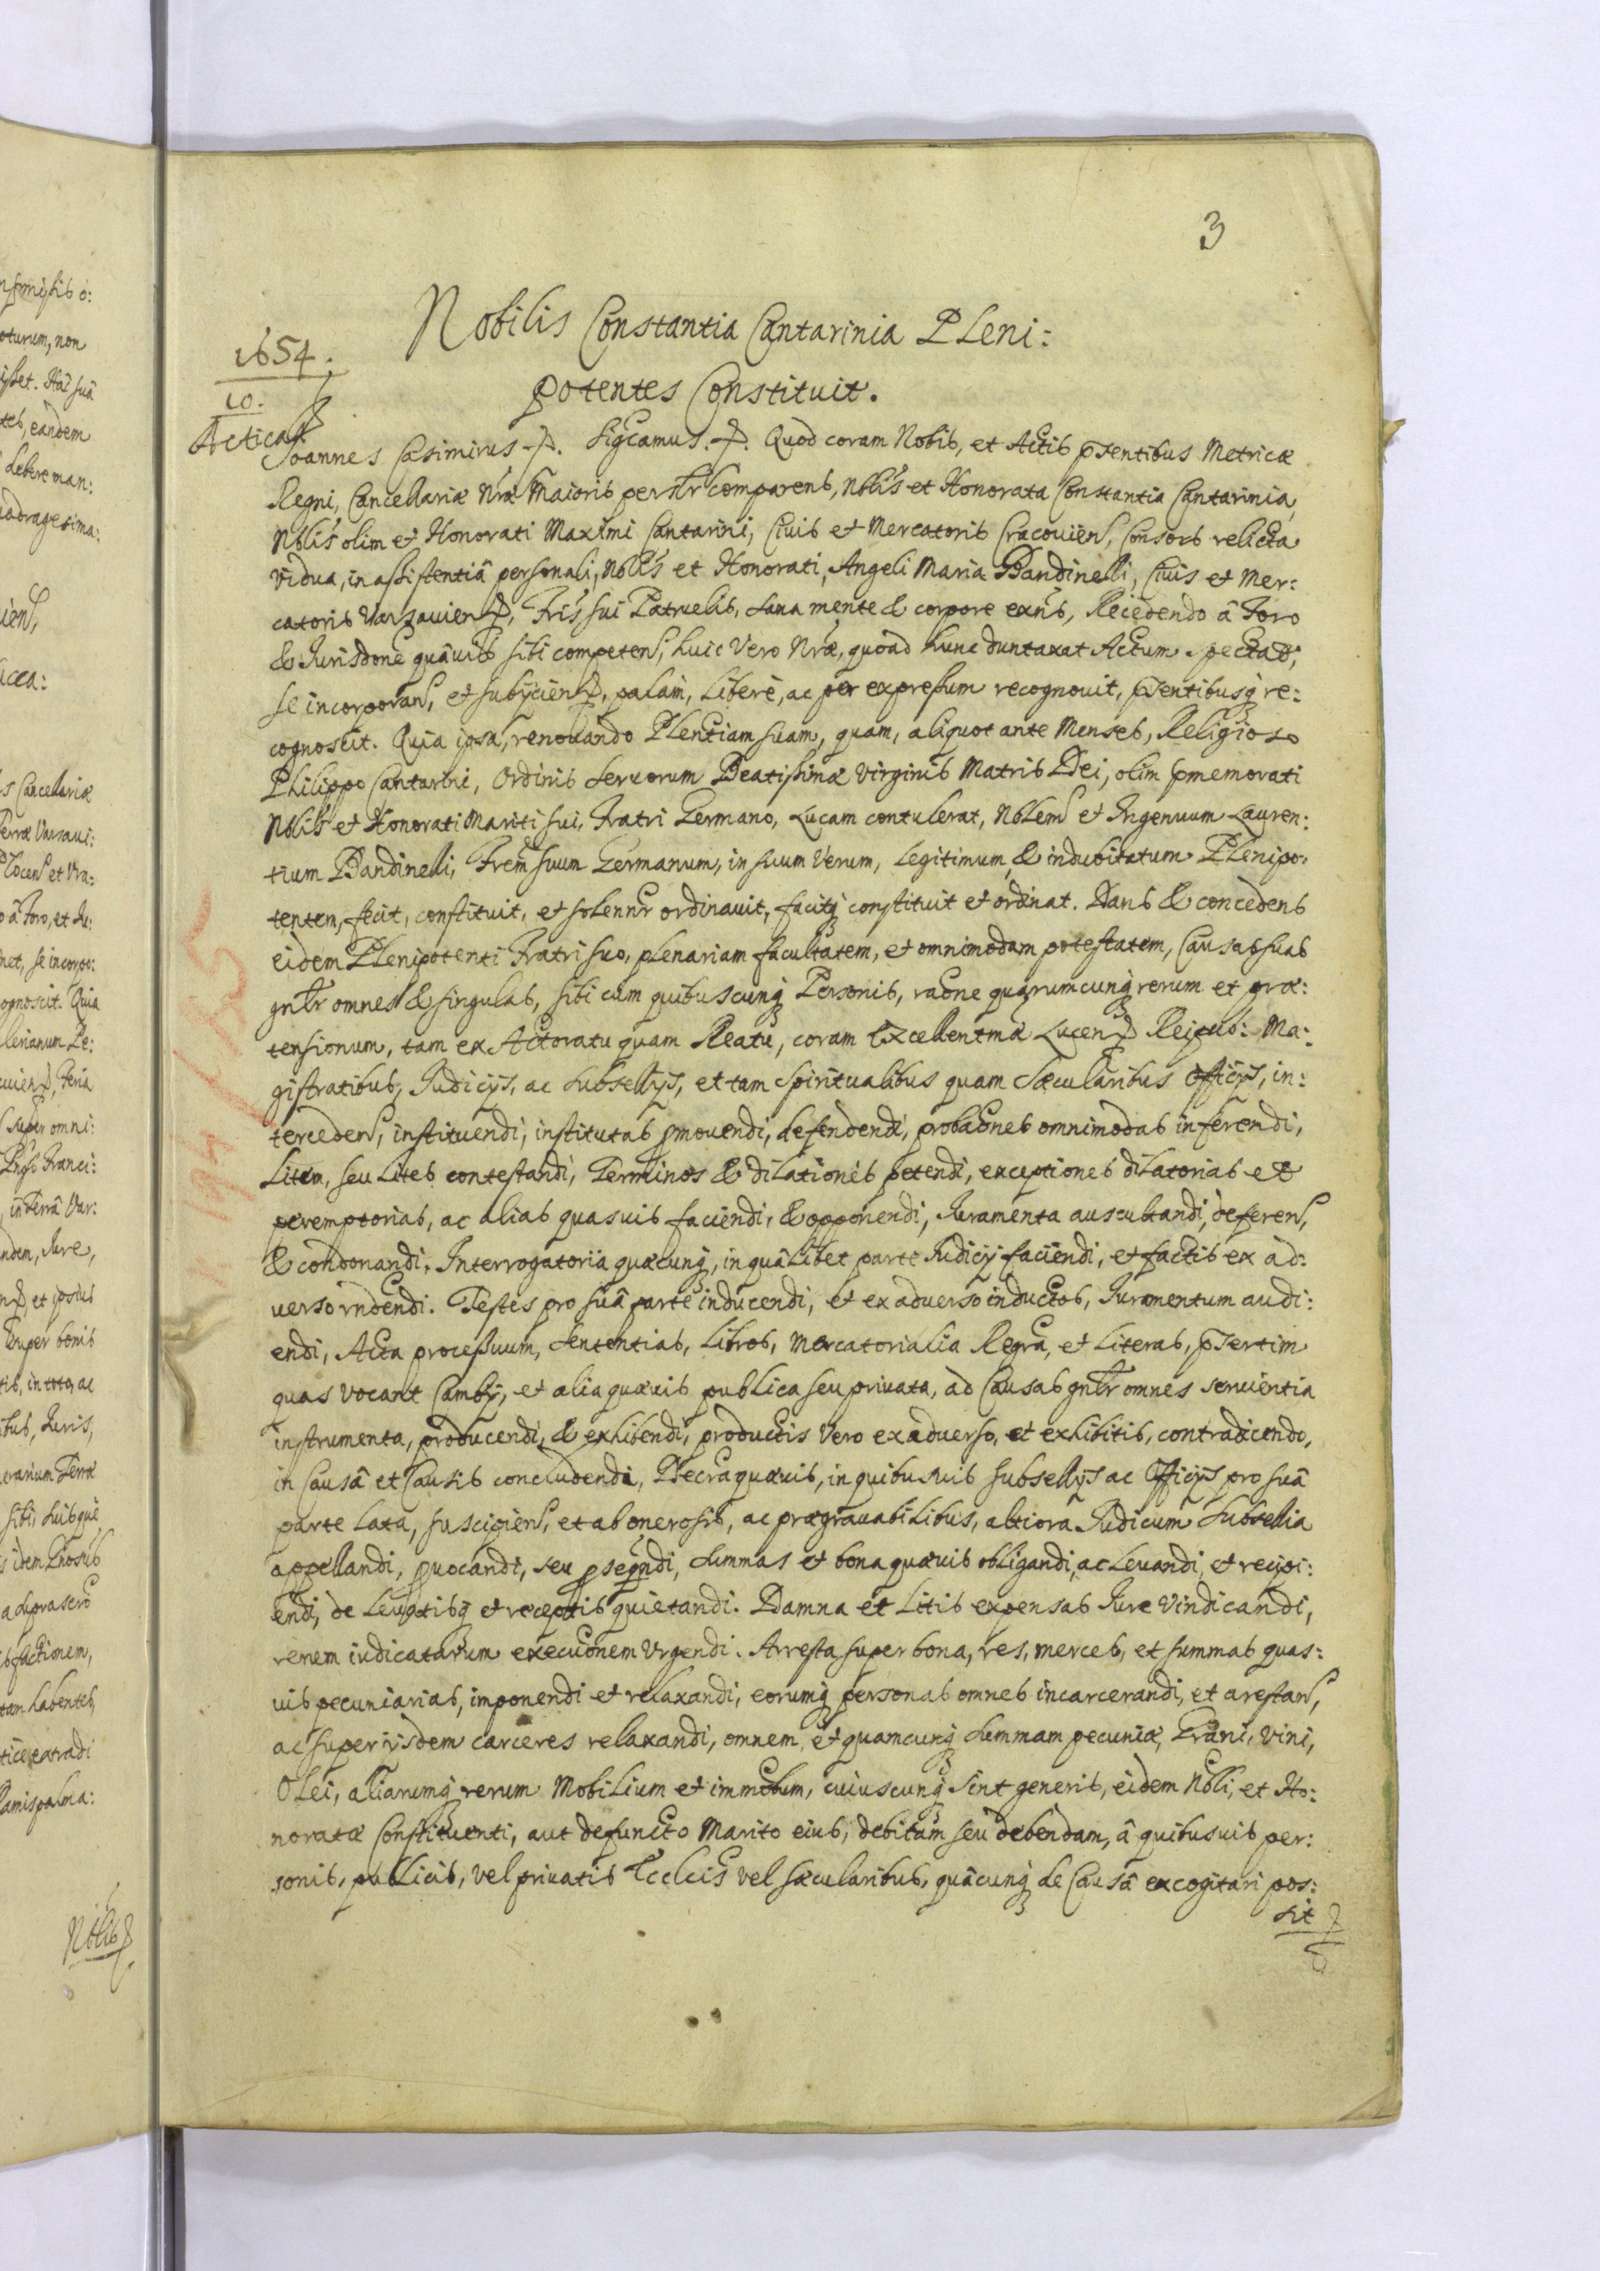 3
Nobilis Constantia Cantarinia Pleni:
potentes Constituit.
1654.
10.
Joannes Casimirus. Sigcamus. Quod coram Nobis, et Actis pñtentibus Metricæ
Regni, Cancellariæ Nræ Maioris personlr comparens, Nobls et Honorata Constantia Cantarinia,
Nobls olim et Honorati Maximi Cantarini, Ciuis et Mercatoris Cracouien, Consors relicta
vidua, in assistentiâ personali, Nobls et Honorati, Angeli Maria Bandinelli, Ciuis et Mer:
catoris Varsauien, Fris sui Patruelis, sana mente & corpore exns, Recedendo â Foro
& Jurisdone quâuis sibi competen, huic vero Nræ, quoad hunc duntaxat Actum spectat,
se incorporan, et subijcien, palam, liberè, ac per expressum recognouit, pñtentibusq re:
cognoscit. Quia ipsa, renouando Plentiam suam, quam, aliquot ante Menses, Religioso
Philippo Cantarini, Ordinis Seruorum Beatissimæ Virginis Matris Dei, olim pmemorati
Nobls et Honorati Mariti sui, Fratri Germano, Lucam contulerat, Noblem et Ingenuum Lauren:
tium Bandinelli, Frem suum Germanum, in suum verum, legitimum, & indubitatum Plenipo:
tentem, fecit, constituit, et solennr ordinauit, facitq constituit et ordinat. Dans & concedens
eidem Plenipotenti Fratri suo, plenariam facultatem, et omnimodam potestatem, Causas suas
gnlr omnes & singulas, sibi cum quibuscunq Personis, raone quarumcunq rerum et præ:
tensionum, tam ex Actoratu quam Reatu, coram Excellentma Lucen Reipub: Ma:
gistratibus, Judicijs, ac Subsellijs, et tam Spiritualibus quam Sæcularibus Officijs, in:
tercedens, instituendi, institutas pmouendi, defendendi, probaones omnimodas inferendi,
Litem, seu Lites contestandi, Terminos & dilationes petendi, exceptiones dilatorias et
peremptorias, ac alias quasuis faciendi, & opponendi, Juramenta auscultandi, deferen,
& condonandi. Interrogatoria quæcunq, in quâlibet parte Judicij faciendi, et factis ex ad:
uerso rndendi. Testes pro suâ parte inducendi, et ex aduerso inductos, Juramentum audi:
endi, Acta processuum, Sententias, Libros, Mercatorialia Regra, et Literas, pñsertim
quas vocant Cambij, et alia quæuis publica seu priuata, ad Causas gnlr omnes seruientia
instrumenta, producendi, & exhibendi, productis vero ex aduerso, et exhibitis, contradicendo,
in Causâ et Causis concludendi, Decra quæuis, in quibusuis subsellijs ac Officijs pro suâ
parte lata, suscipien, et ab onerosis, ac prægrauabilibus, altiora Judicum Subsellia
appellandi, puocandi, seu pseqndi, Summas et bona quæuis obligandi, ac leuandi, et recipi:
endi, de leuatisq et receptis quietandi. Damna et Litis expensas Jure vindicandi,
rerum iudicatarum execuonem vrgendi. Arresta super bona, res, merces, et summas quas:
uis pecuniarias, imponendi et relaxandi, eorumq personas omnes incarcerandi, et arestan,
ac super ijsdem carceres relaxandi, omnem et quamcunq Summam pecuniæ, Grani, Vini,
Olei, aliarumq rerum Mobilium et immoblium, cuiuscunq sint generis, eidem Nobli, et Ho:
noratæ Constituenti, aut defuncto Marito eius, debitam seu debendam, â quibusuis per:
sonis, publicis, vel priuatis Ecclcis vel sæcularibus, quâcunq de Causâ excogitari pos:
sit